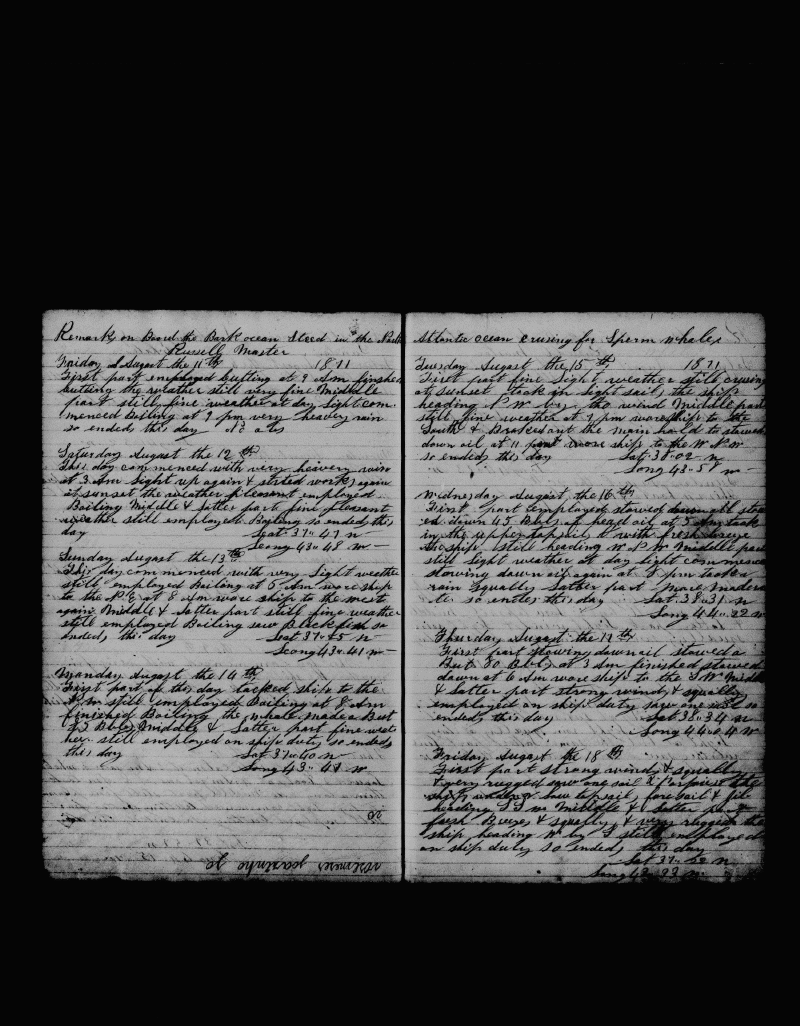 Remarks on Board the Bark ocean Steed in the North
Russell Master
Friday August the 11th 1871
First part employed cutting at 9 Am finished
cutting the weather still very fine Middle
part still fine weather at day light com
menced boiling at 7 pm very heavey rain
so ended this day
Saturday August the 12th
This day commenced with very heavery rain
at 3 Am light up again & started works again
at sunset the weather pleasent employed
Boiling Middle & Latter part fine pleasant
weather still employed Boiling so ended this
day Lat 37.. 47 n
Long 43.. 48 w
Sunday August the 13th
This day commenced with very light weather
still employed Boilang at 5 Am wore ship
to the at 8 Am wore ship to the west
again Middle & Latter part still fine weather
still employed Boiling saw Blackfish so
ended this day Lat 37.. 45 n
Leong 43.. 41 w
Manday August the 14th
First part of this day tacked ship to the
still employed Boiling at 8 Am
finished Boiling the whale made a But
75 Bbls Middle & Latter part fine weat
her still employed on ship duty so ended
this day Lat 37.. 40 n
Long 43.. 49 w
Atlantic ocean crusing for Sperm whales
Tuesday August the 15th 1871
First part fine light weather still crusing
at sunset took in light sails the ship
heading N W by the wind Middle part
still fine weather at 7 pm wore ship to the
South & Brokesout the main hold to stowed
down oil at 11 wore ship to the W N W
so ended this day Lat 38..02 n
Long 43.. 58 w
Wednesday August the 16th
First part employed stowed down oil stow
ed down 45 Bbls of head oil at 5 Am took
in the upper topsails with fresh breeze
the ship still heading W N W Middle part
still light weather at day light commence
stowing down oil again at 8 pm took a
rain squally Latter part more modera
te so ended this day Lat 38..31 n
Long 44.. 22 w
Thursday August the 17th
First part stowing down oil stowed a
But 80 Bbls at 3 Am finished stowed
down at 6 Am wore ship to the S W Middle
& Latter part strong winds & squally
employed on ship duty saw one sail so
ended this day Lat 38..34 n
Long 44.. 04 w
Friday August the 18th
First part strong winds & squally
& very rugged saw one sail & porpoises the
ship under low topsails foresail & jib
heading S S W Middle & Latter part
fresh Breezes & squally & very rugged the
ship heading W by S still employed
on ship duty so ended this day
Lat 37.. 52 n
Long 43.. 33 w